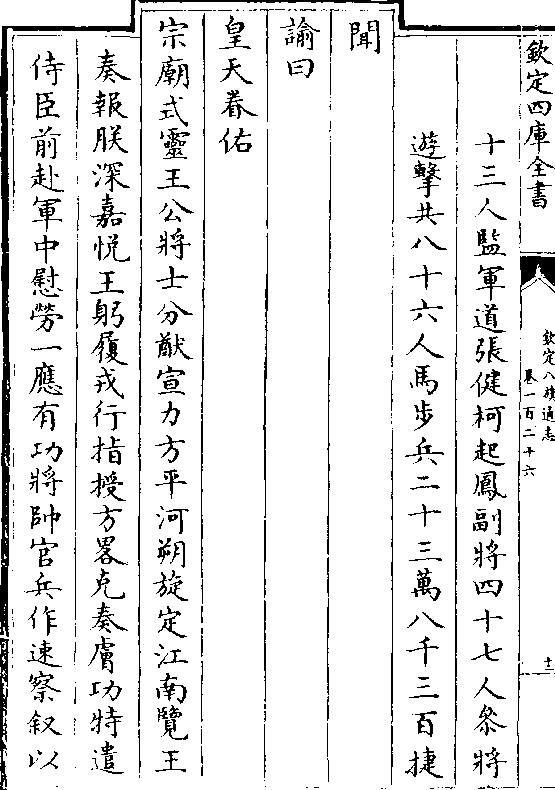 欽定四庫全書
欽定八旗通志
卷一百二十六
十二
十三人監軍道張健柯起鳳副將四十七人叅將
遊擊共八十六人馬步兵二十三萬八千三百捷
聞
諭曰
皇天眷佑
宗廟式靈王公將士分猷宣力方平河朔旋定江南覽王
奏報朕深嘉悅王躬履戎行指授方畧克奏膚功特遣
侍臣前赴軍中慰勞一應有功將帥官兵作速察叙以